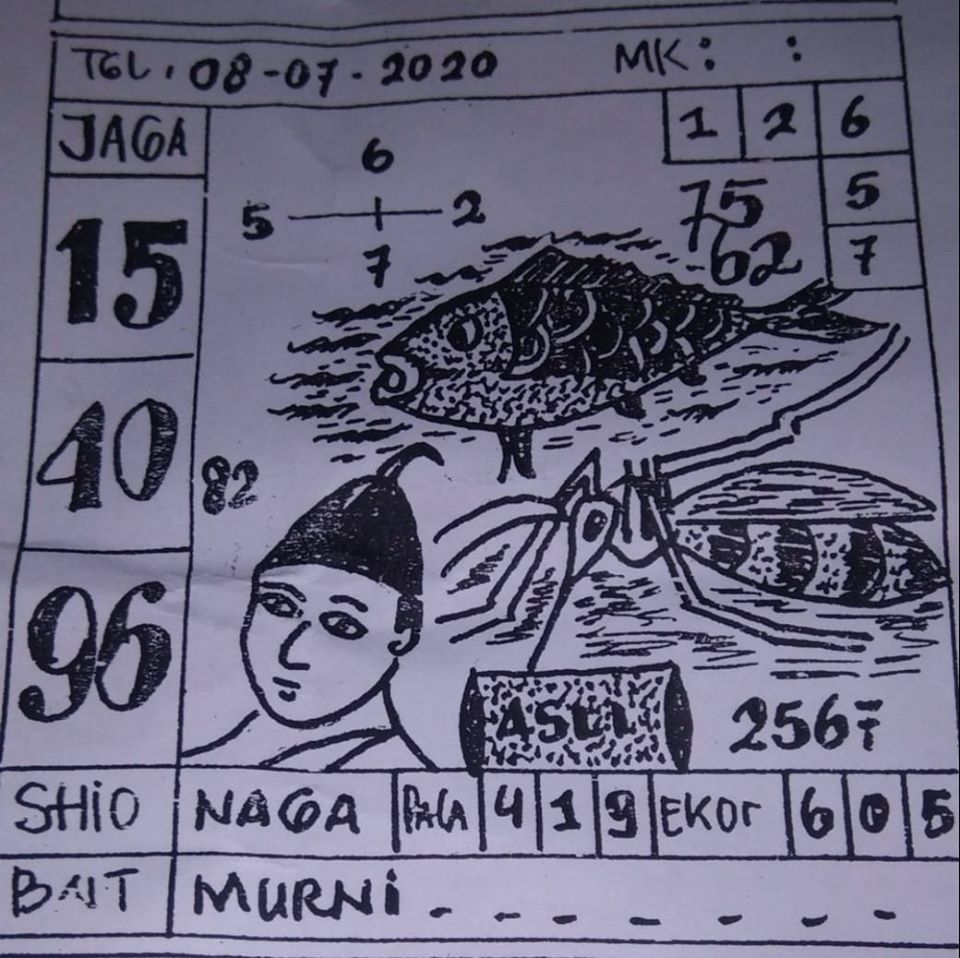 TGL. 08-07-2020 MK: :
JAGA
1 2 6
6
5 2
7
75
5
62
7
15
40
82
96
ASLI
2567
SHIO NAGA PALA 4 1 9 EKOr 6 0 5
BAIT MURNi - - - - - - -